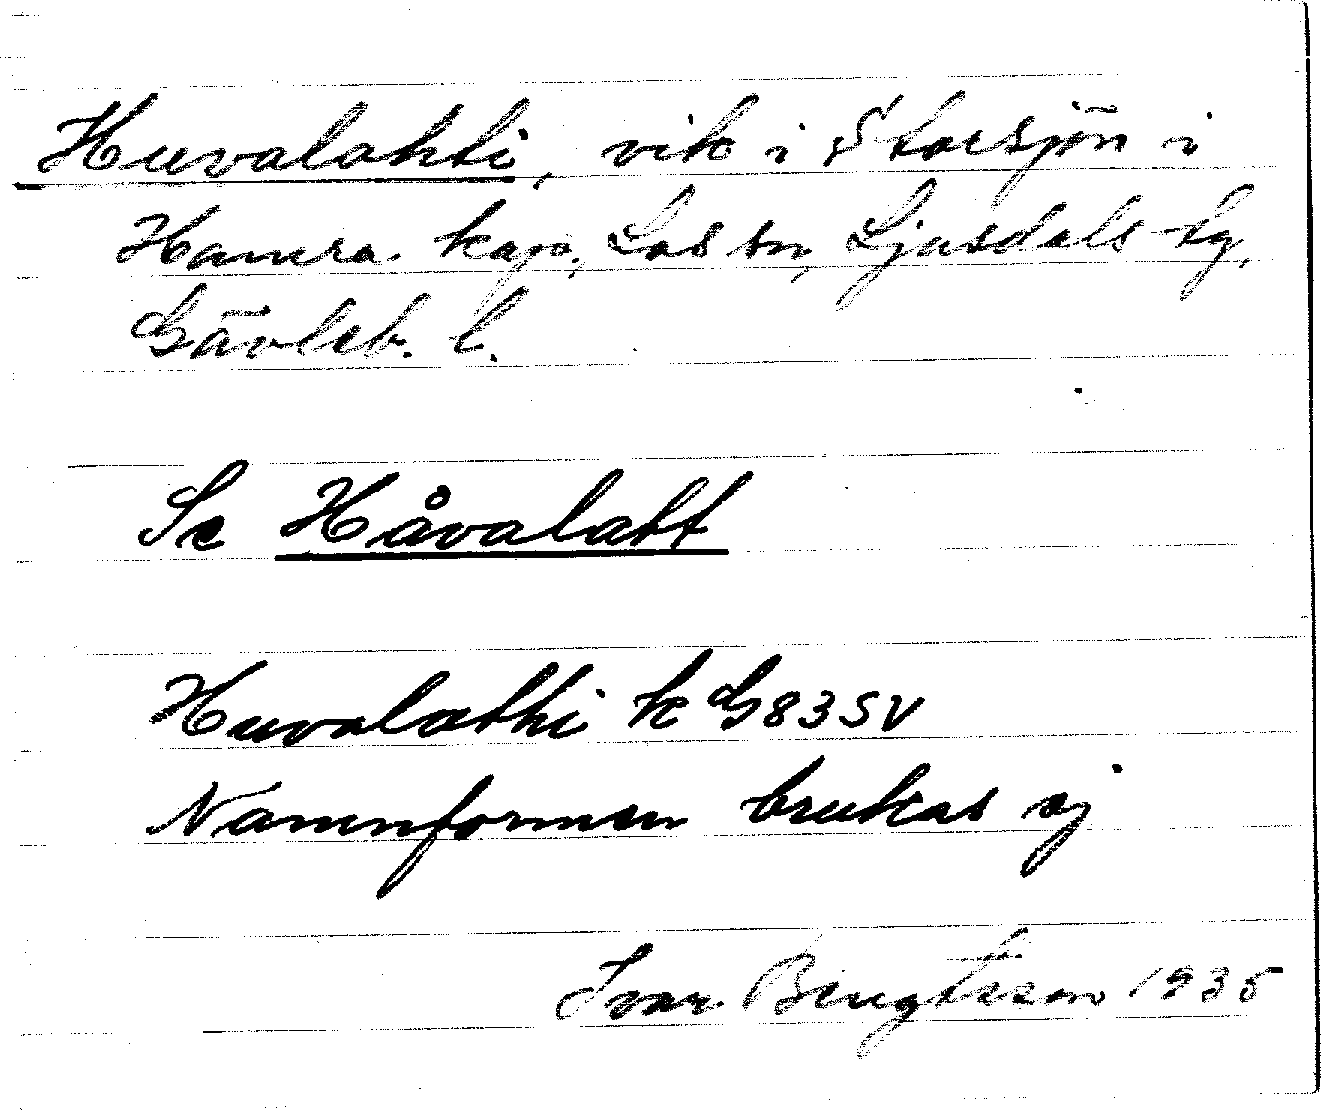 Huvalahti, vik i Storsjön i
Hamra kap., Los sn, Ljusdals tg,
Gävleb. l.
Se Håvalatt
Huvalathi k G83SV
Namnformen brukas ej
Ivar Bengtsson 1935